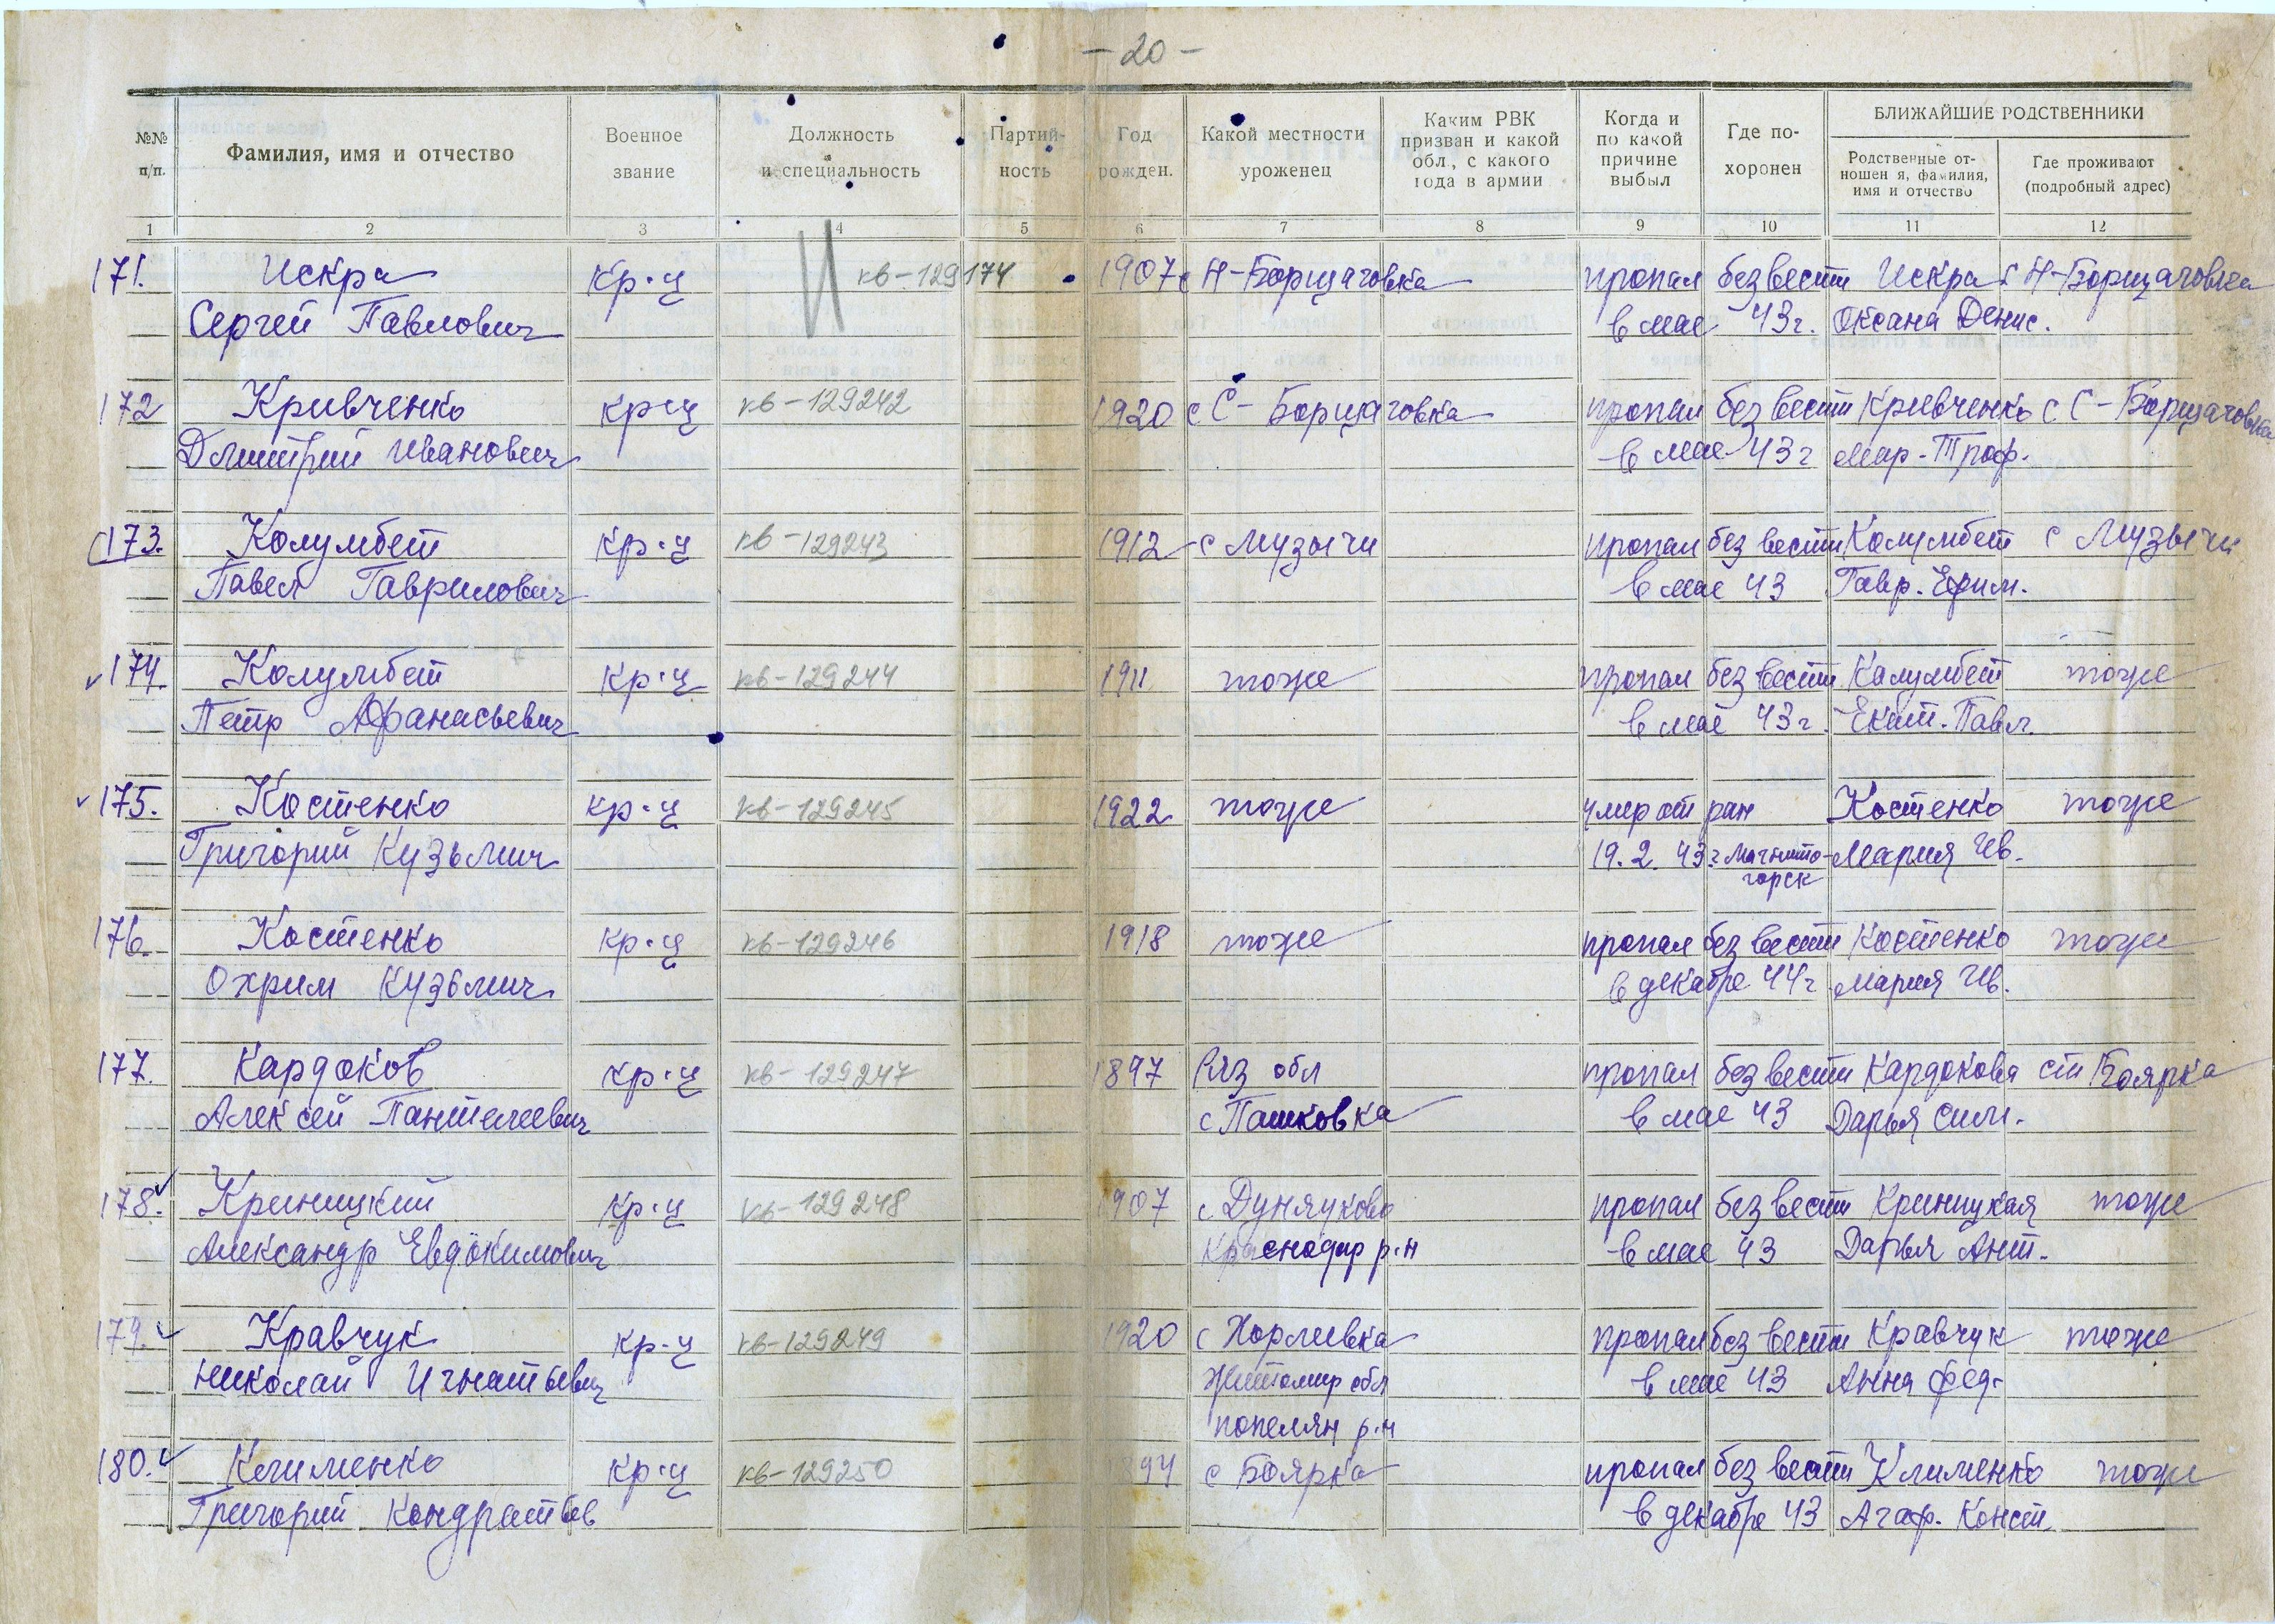 - 20 -
№№ п/п.
Фамилия, имя и отчество
Военное звание
Должность и специальность
Партийность
Год рожден.
Какой местности уроженец
Каким РВК призван и какой обл, с какого года в армии
Когда и по какой причине выбыл
Где похоронен
БЛИЖАЙШИЕ РОДСТВЕННИКИ
Родственные отношен я, фамилия, имя и отчество
Где проживают (подробный адрес)
1 2 3 4 5 6 7 8 9 10 11 12
171. Искра кр-ц кв-129174 1907 с Н-Борщаговка пропал без вести Искра с Н-Борщаговка
Сергей Павлович в мае 43г. Оксана Денис.
172 Кривченко кр-ц кв-129242 1920 с С-Борщаговка пропал без вести Кривченко с С-Борщаговка
Дмитрий Иванович в мае 43г Мар-Троф.
173. Колумбет кр-ц кв-129243 1912 с Музычи пропал без вести Колумбет с Музычи
Павел Гаврилович в мае 43 Гавр. Ефим.
174. Колумбет кр-ц кв-129244 1911 тоже пропал без вести Калумбет тоже
Петр Афанасьевич в мае 43г. Екат. Павл.
175. Костенко кр-ц кв-129245 1922 тоже умер от ран Костенко тоже
Григорий Кузьмич 19.2.43г Магнито- Мария Ив.
горск
176. Костенко кр-ц кв-129246 1918 тоже пропал без вести Костенко тоже
Охрим Кузьмич в декабре 44г Мария Ив.
177. Кардоков кр-ц кв-129247 1897 Ряз обл пропал без вести Кардокова ст Боярка
Алексей Пантелеевич с Пашковка в мае 43 Дарья Сим.
178. Криницкий кр-ц кв-129248 1907 с пропал без вести Криницкая тоже
Александр Евдокимович Краснодар р-н в мае 43 Дарья Ант.
179. Кравчук кр-ц кв-129249 1920 с Хорлиевка пропал без вести Кравчук тоже
Николай Игнатьевич Житомир обл в мае 43 Анна Фед.
попелян р-н
180. Клименко кр-ц кв-129250 894 с Боярка пропал без вести Клименко тоже
Григорий Кондратьев в декабре 43 Агаф. Конст.